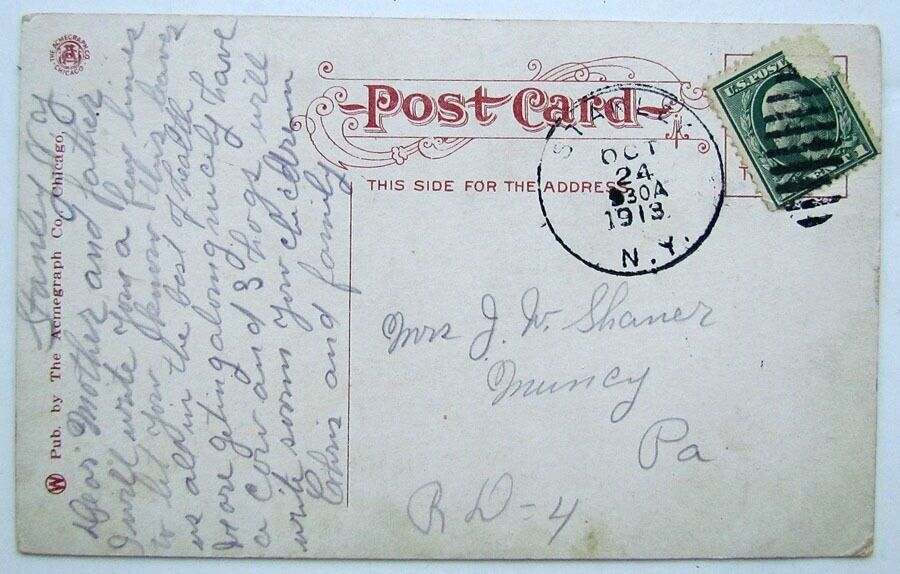 THE ACMEGRAPH CO.
CHICAGO
W Pub. by The Acmegraph Co., Chicago,
Stanley NY
Dear Mother and father
I will write you a few lines
to let you know this leaves
us all in the best of health
we are geting along nicely have
a cow and 3 hogs will
write soon your children
Chris and family
Post Card
THIS SIDE FOR THE ADDRESS
STANLEY
OCT
24
830A
1913
N.Y.
U.S. POST
1
Mrs J. W. Shaner
Muncy
Pa
RD-4